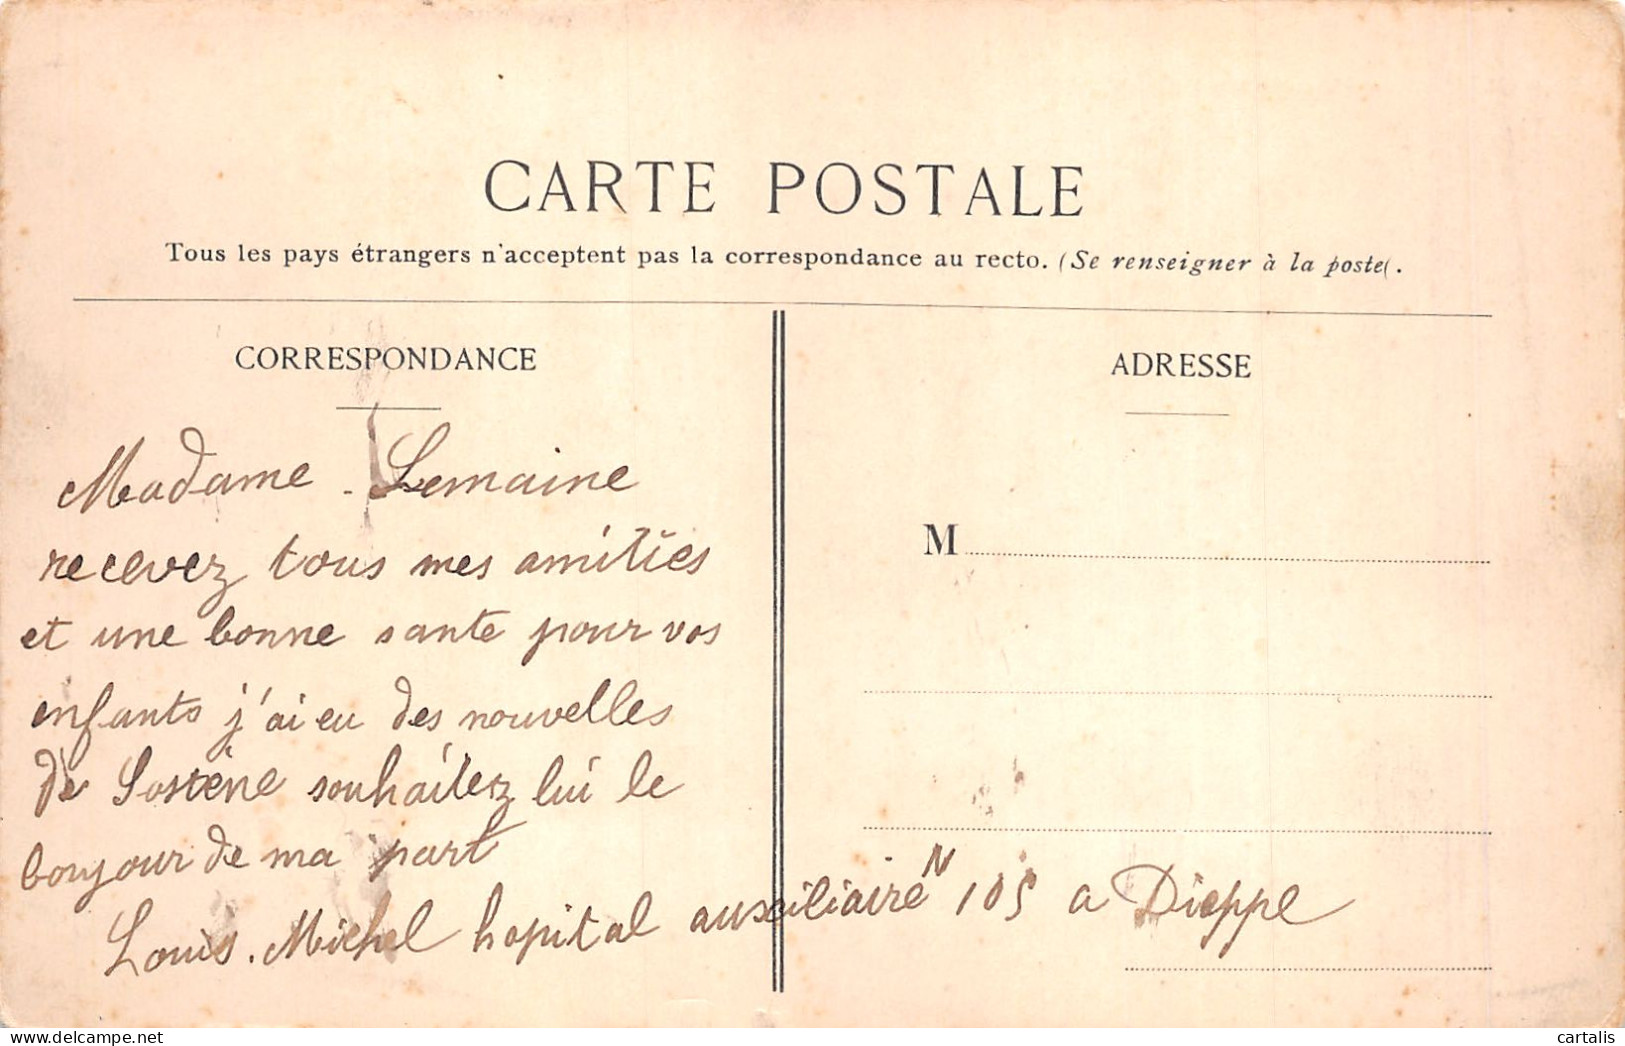 CARTE POSTALE
Tous les pays étrangers n'acceptent pas la correspondance au recto. (Se renseigner à la poste(.
CORRESPONDANCE
ADRESSE
Madame - Lemaine
recevez tous mes amities
et une bonne sante pour vos
enfants j'ai eu des nouvelles
de Sostène souhaitez lui le
bonjour de ma part
Louis. Michel hopital auxciliaire N 105 a Dieppe
M
cartalis